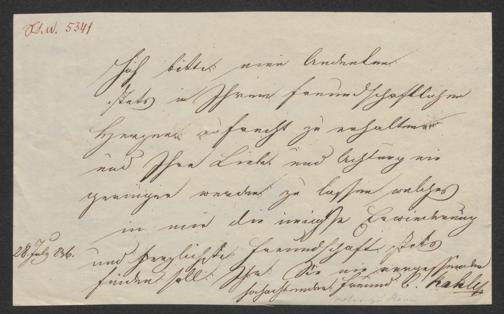 Ich bitte mein Andenken
stets in Ihrem freundschaftlichen
Herzen aufrecht zu erhalten
und Ihre Liebe und Achtung nie
geringer werden zu lassen welches
in mir die innigste Erwiederung
und herzlichste Freundschaft stets
finden soll. Ihr Sie nie vergessender
hochachtender Freund C.
28 July 836.